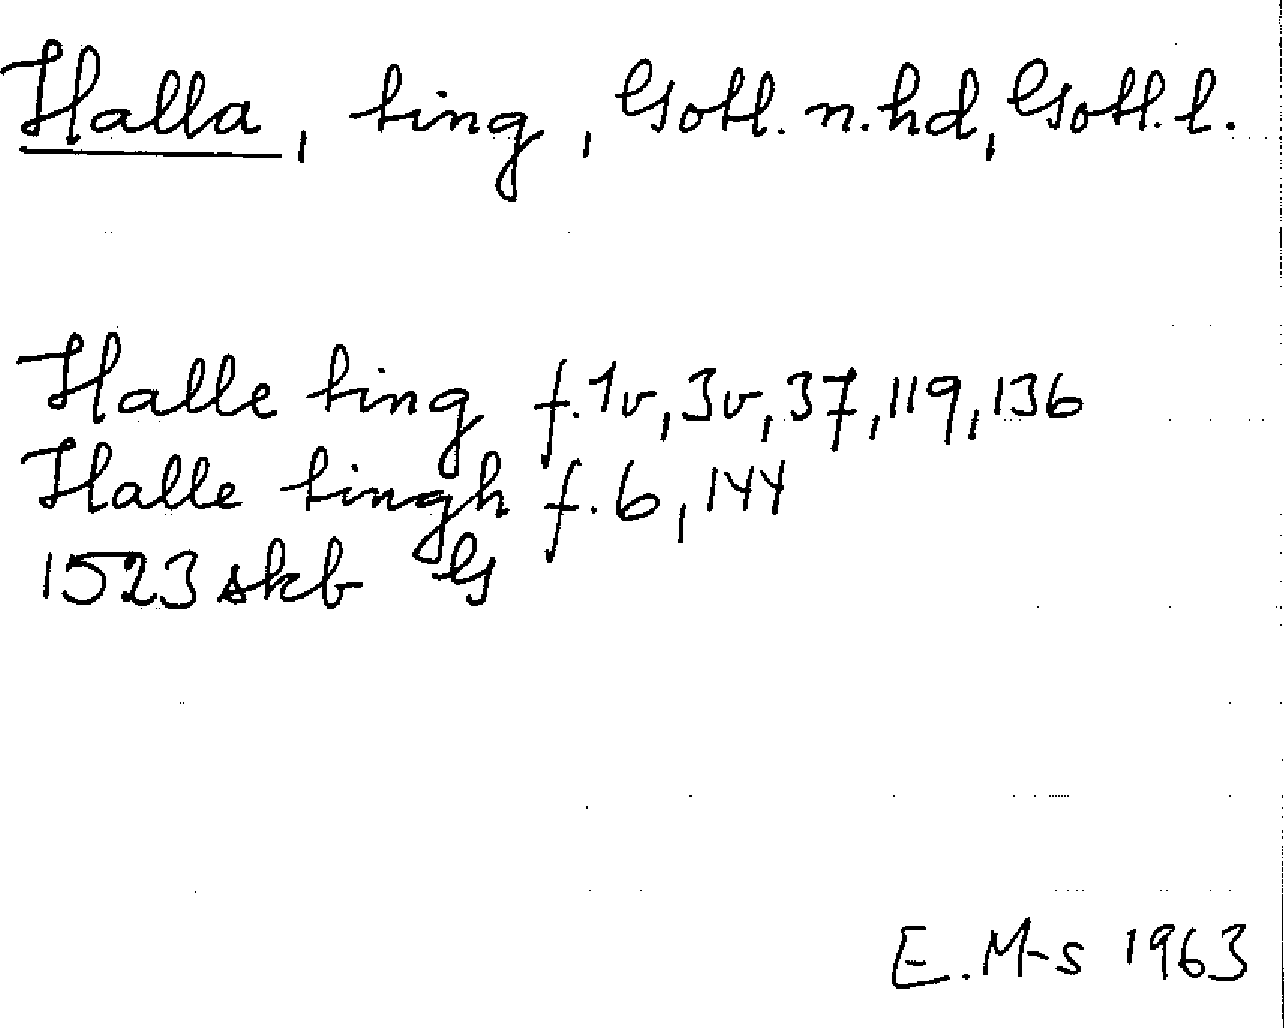 Halla, ting, Gotl. n. hd, Gotl. l.
Halle ting f. 1v, 3v, 37, 119, 136
Halle tingh f. 6, 144
1523 skb G
E. M-s 1963